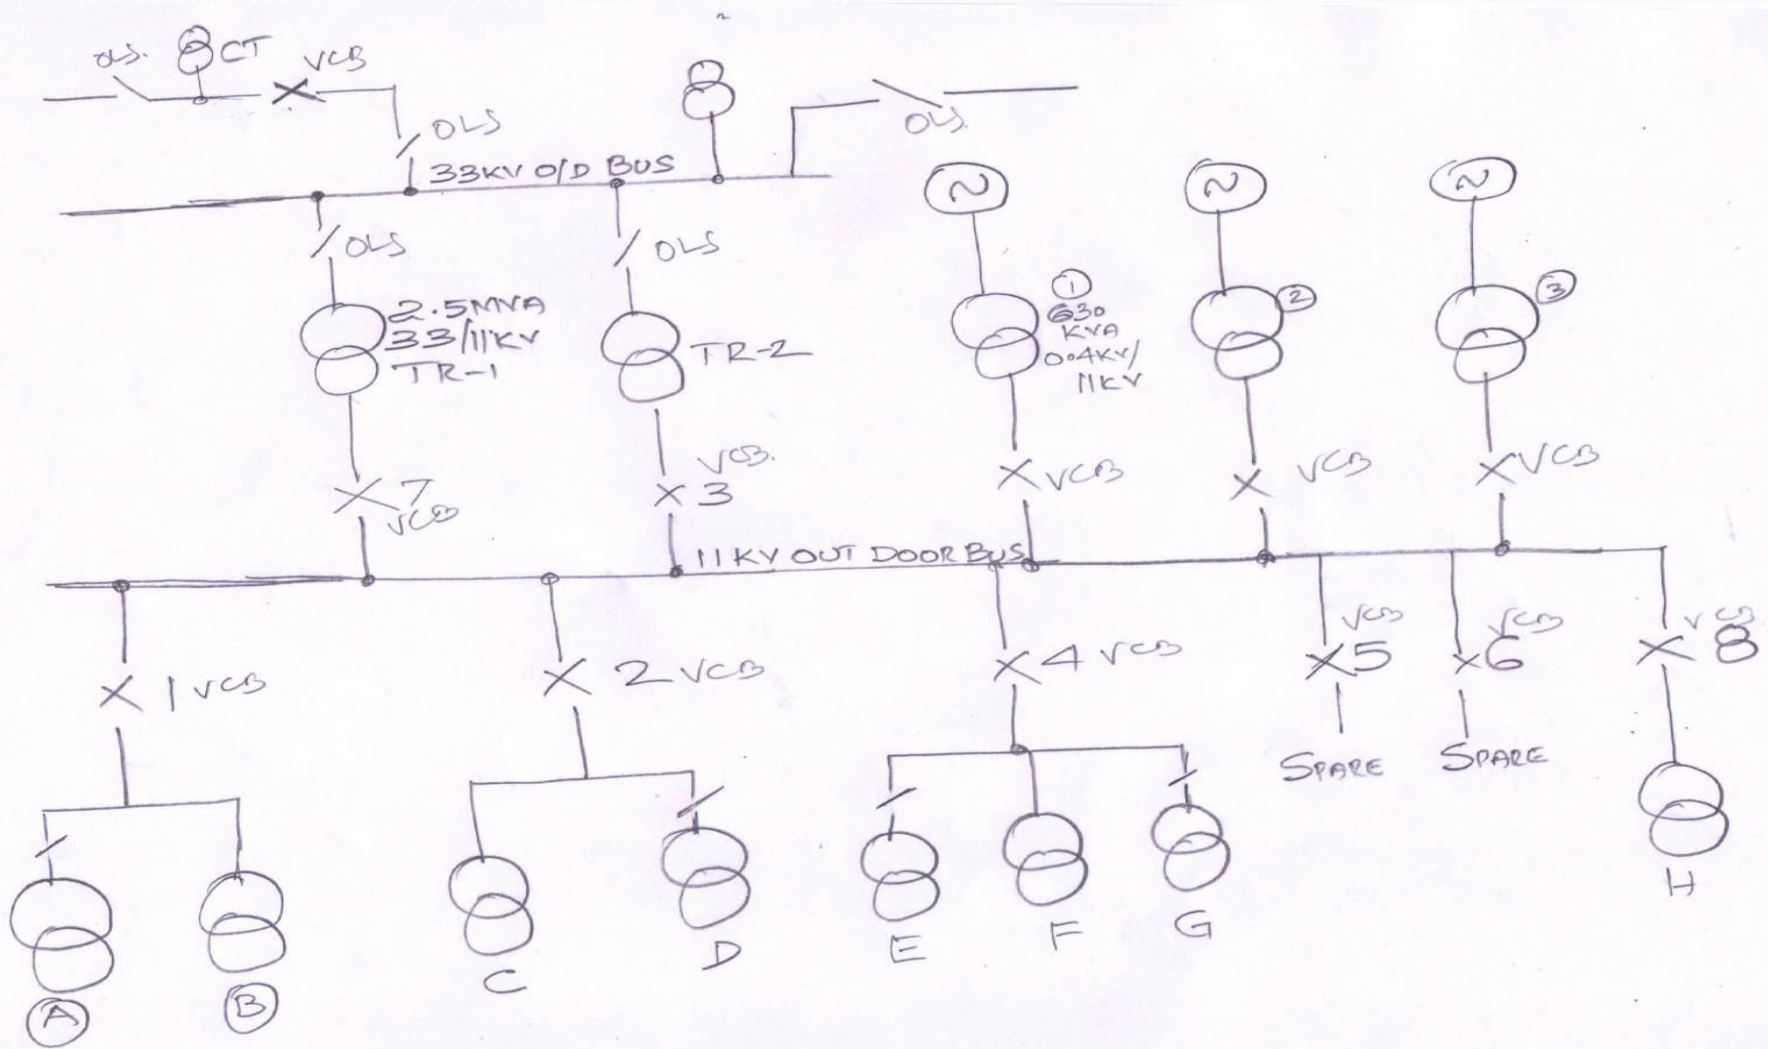 OLS.
CT
VCB
OLS
OLS.
33KV O/D BUS
~
~
~
OLS
OLS
2.5MVA
33/11KV
TR-1
TR-2
1
630
KVA
0.4KV/
11KV
2
3
7
VCB
VCB.
3
VCB
VCB
VCB
11KV OUT DOOR BUS
1 VCB
2 VCB
4 VCB
VCB
5
VCB
6
VCB
8
SPARE
SPARE
A
B
C
D
E
F
G
H